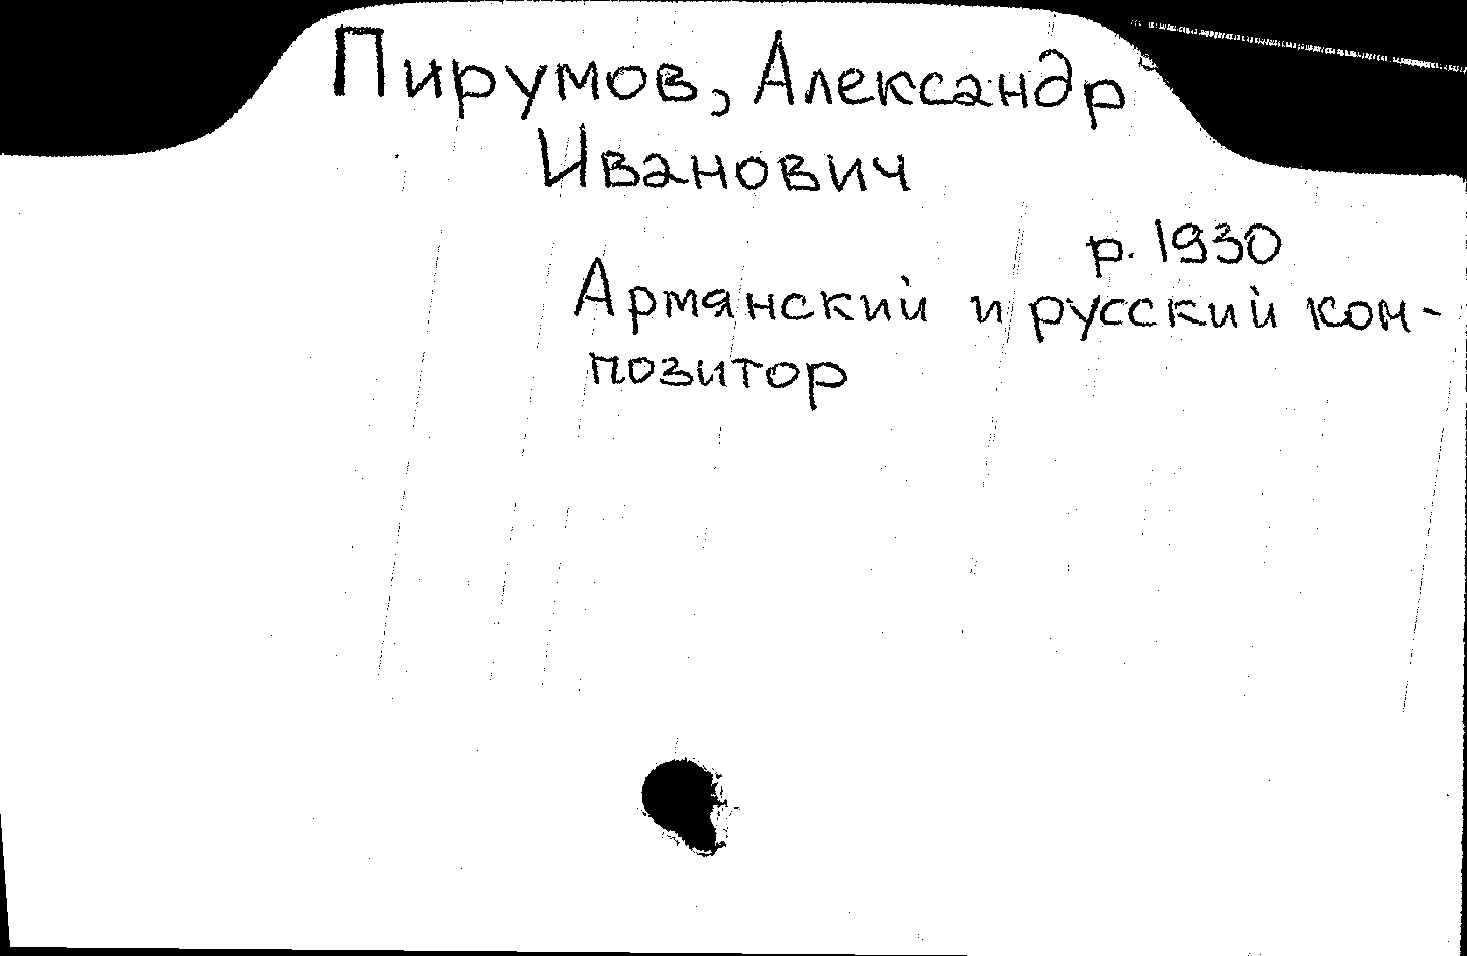 Пирумов, Александр
Иванович
р. 1930
Армянский и русский ком-
позитор